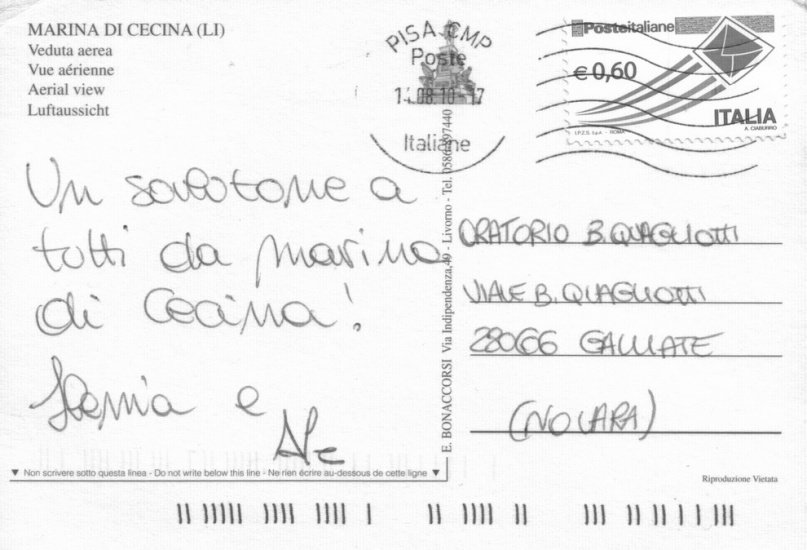 MARINA DI CECINA (LI)
Veduta aerea
Vue aérienne
Aerial view
Luftaussicht
PISA CMP
Poste
14.08.10-17
Italiane
Posteitaliane
€ 0,60
ITALIA
A. CIABURRO
I.P.Z.S. S.p.A. - ROMA
Un salutone a
tutti da marina
di Cecina!
e
Ale
E. BONACCORSI Via Indipendenza,49 - Livorno - Tel. 0586 897440
ORATORIO B. QUAGLIOTTI
VIALE B. QUAGLIOTTI
28066 GALLIATE
(NOVARA)
▼ Non scrivere sotto questa linea - Do not write below this line - Ne rien écrire au-dessous de cette ligne ▼
Riproduzione Vietata